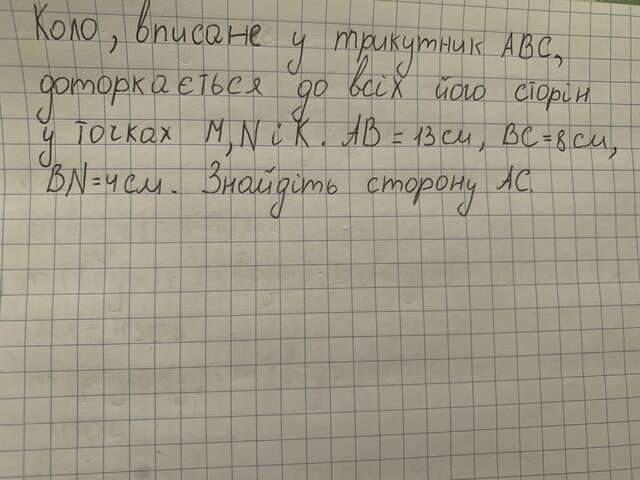 Коло, вписане у трикутник ABC,
доторкається до всіх його сторін
у точках M, N і K. AB = 13 см, BC = 8 см,
BN = 4 см. Знайдіть сторону AC.